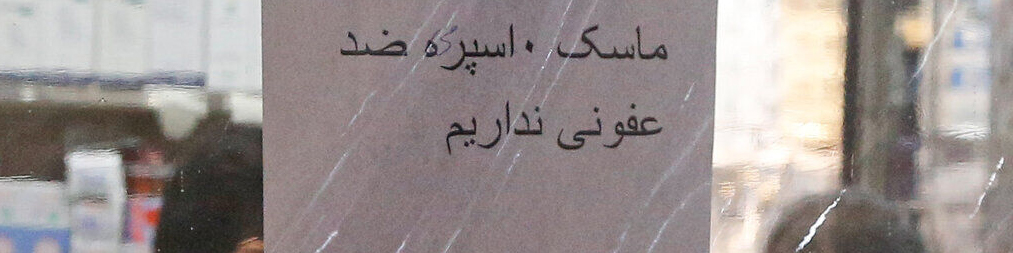 ماسک ٠اسپره ضد
عفونی نداریم